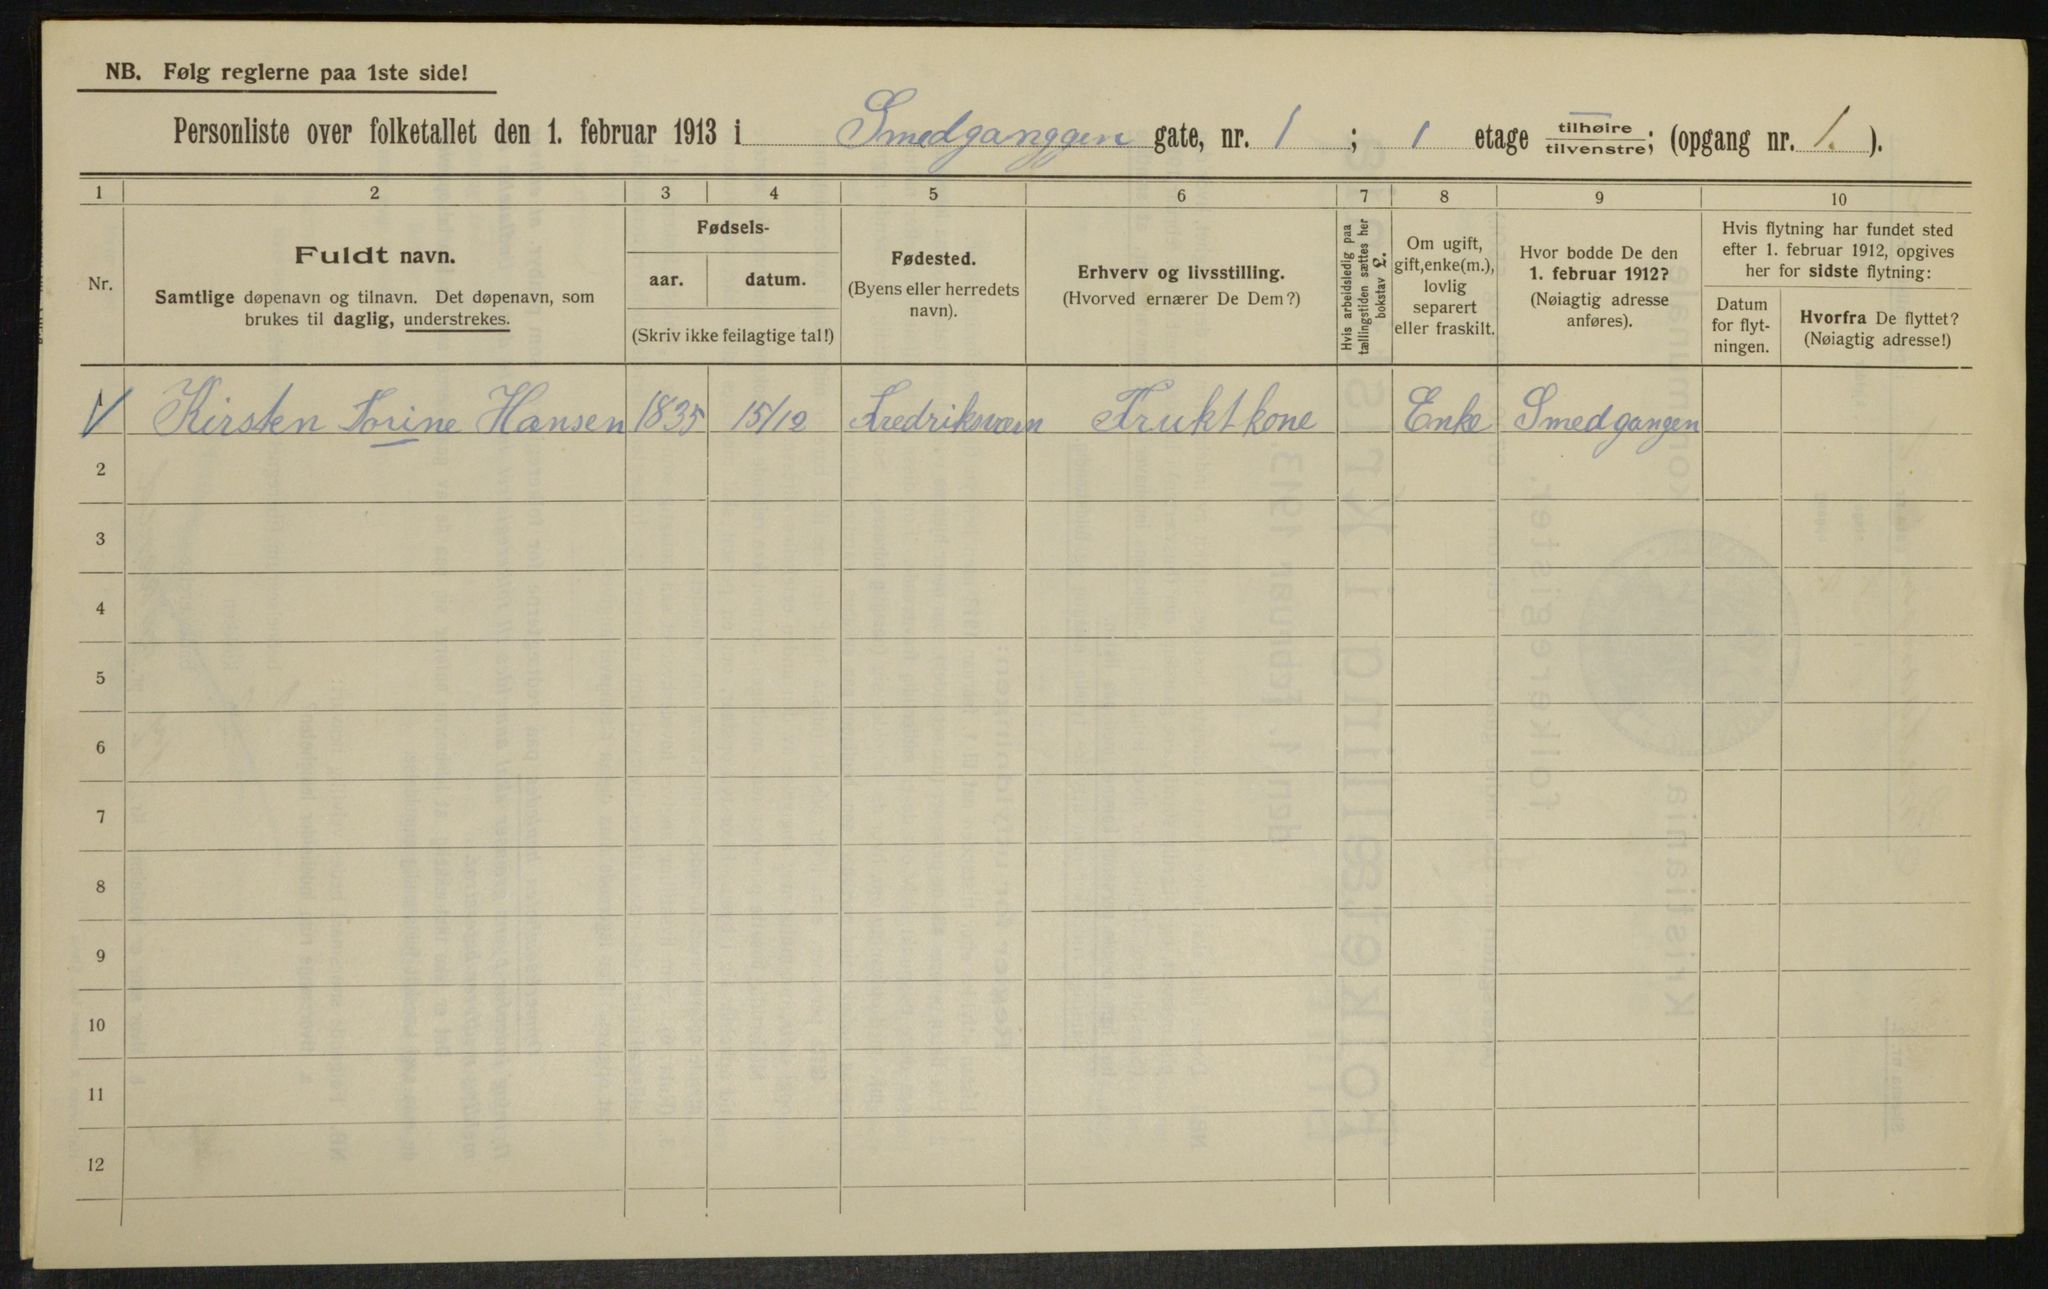 NB. Følg reglerne paa 1ste side!
Personliste over folketallet den 1. februar 1913 i Smedganggen gate, nr. 1 ; 1 etage tilhøire tilvenstre; (opgang nr. 1. ).
1 2 3 4 5 6 7 8 9 10
Nr.
Fuldt navn.
Samtlige døpenavn og tilnavn. Det døpenavn, som
brukes til daglig, understrekes.
Fødsels-
aar. datum.
(Skriv ikke feilagtige tal!)
Fødested.
(Byens eller herredets
navn).
Erhverv og livsstilling.
(Hvorved ernærer De Dem?)
Hvis arbeidsledig paa
tællingstiden sættes her
bokstav L.
Om ugift,
gift, enke(m.),
lovlig
separert
eller fraskilt.
Hvor bodde De den
1. februar 1912?
(Nøiagtig adresse
anføres).
Hvis flytning har fundet sted
efter 1. februar 1912, opgives
her for sidste flytning:
Datum
for flyt-
ningen.
Hvorfra De flyttet?
(Nøiagtig adresse!)
1 Kirsten Sorine Hansen 1835 15/12 Fredriksværn Fruktkone Enke Smedgangen
2
3
4
5
6
7
8
9
10
11
12